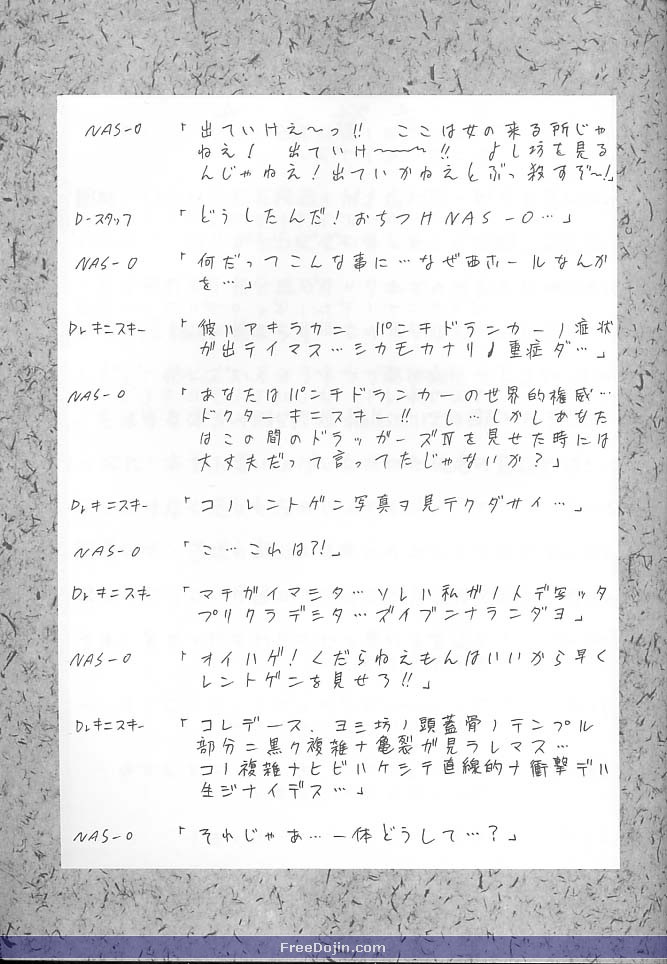 NAS-O 「出ていけえ〜っ!! ここは女の来る所じゃ
ねえ! 出ていけ〜〜〜!! よし坊を見る
んじゃねえ!出ていかねえとぶっ殺すぞ〜!」
D-スタッフ 「どうしたんだ!おちつけNAS-O…」
NAS-O 「何だってこんな事に…なぜ西ホールなんか
を…」
Dr.キニスキー 「彼ハアキラカニ パンチドランカーノ症状
が出テイマス…シカモカナリノ重症ダ…」
NAS-O 「あなたはパンチドランカーの世界的権威…
ドクターキニスキー!! し…しかしあなた
はこの間のドラッガーズⅣを見せた時には
大丈夫だって言ってたじゃないか?」
Dr.キニスキー 「コノレントゲン写真ヲ見テクダサイ…」
NAS-O 「こ…これは?!」
Dr.キニスキー 「マチガイマシタ…ソレハ私ガ1人デ写ッタ
プリクラデシタ…ズイブンナランダヨ」
NAS-O 「オイハゲ!くだらねえもんはいいから早く
レントゲンを見せろ!!」
Dr.キニスキー 「コレデース. ヨシ坊ノ頭蓋骨ノテンプル
部分ニ黒ク複雑ナ亀裂が見ラレマス…
コノ複雑ナヒビハケシテ直線的ナ衝撃デハ
生ジナイデス…」
NAS-O 「それじゃあ…一体どうして…?」
FreeDojin.com